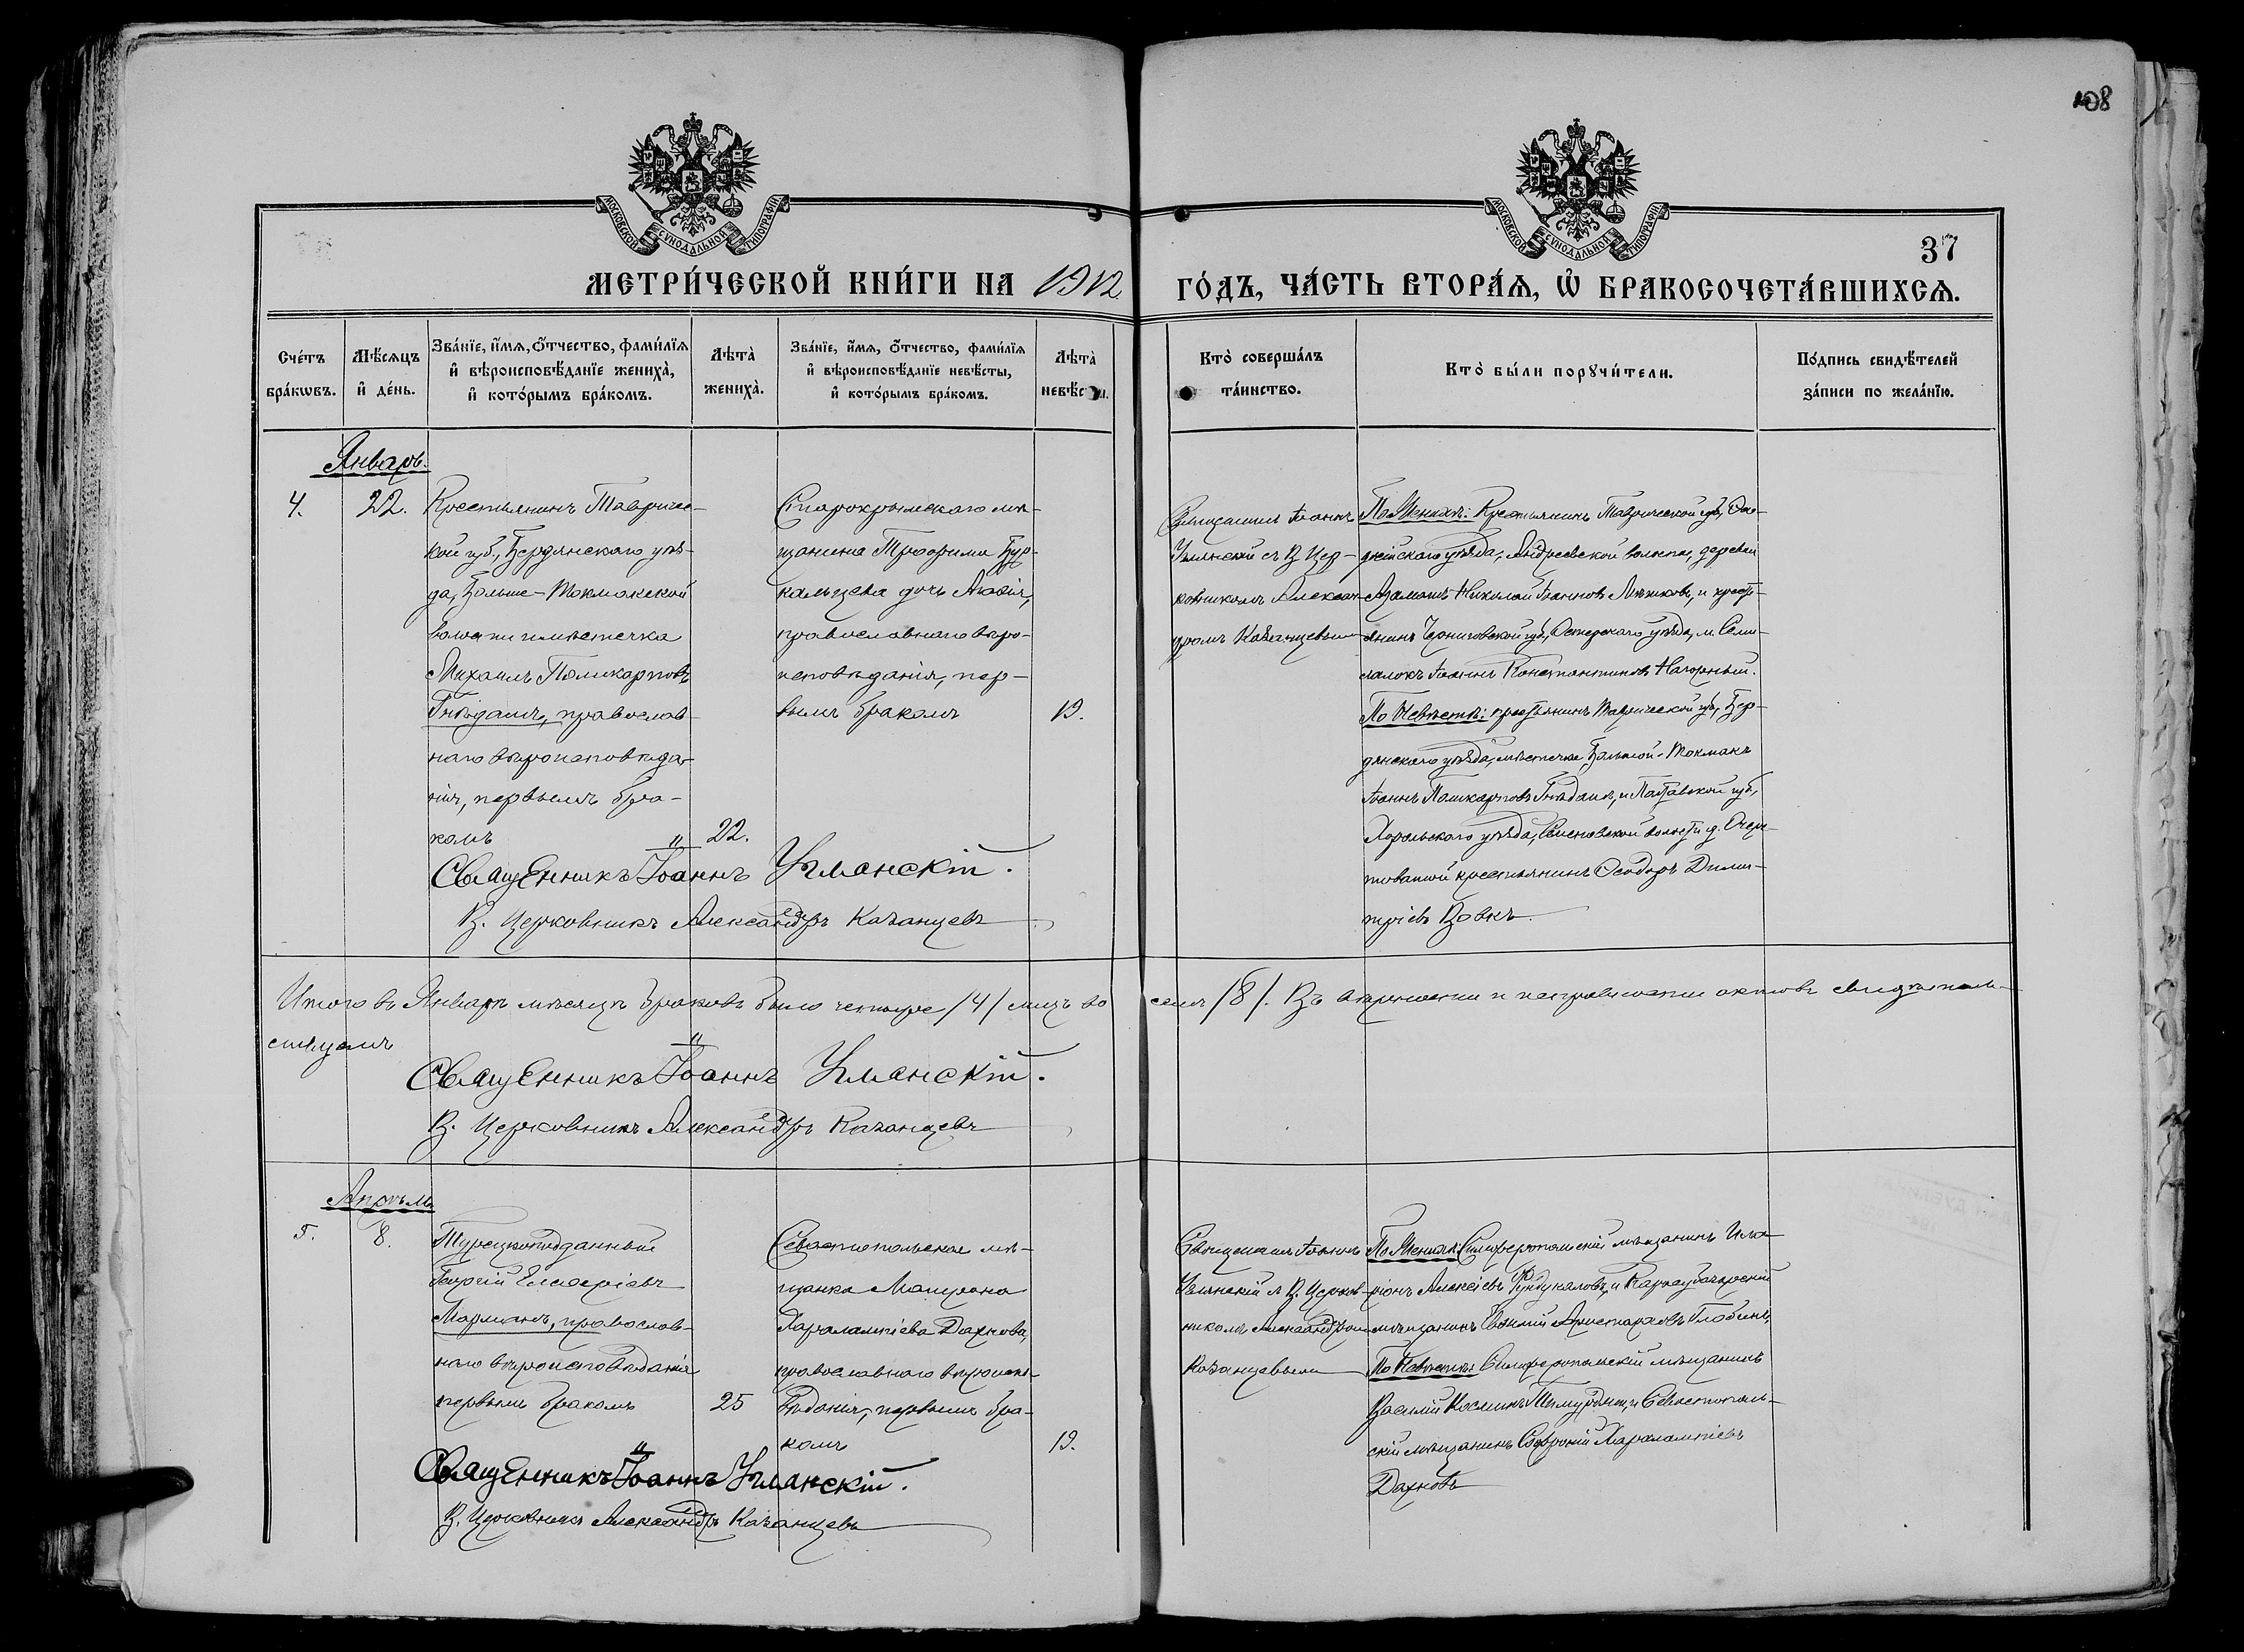 108
МОСКОВСКОЙ СУНОДАЛЬНОЙ ТИПОГРАФІИ
МОСКОВСКОЙ СУНОДАЛЬНОЙ ТИПОГРАФІИ
37
МЕТРИ́ЧЕСКОЙ КНИ́ГИ НА 1912 ГО́ДЪ, ЧА́СТЬ ВТОРА́Ѧ, Ѡ҆ БРАКОСОЧЕТА́ВШИХСѦ.
Сче́тъ бра́кѡвъ.
Мѣ́сѧцъ и҆ де́нь.
Зва́нїе, и҆́мѧ, ѻ҆́тчество, фами́лїѧ
и҆ вѣроисповѣ́данїе жениха̀,
и҆ кото́рымъ бра́комъ.
Лѣта̀ жениха̀.
Зва́нїе, и҆́мѧ, ѻ҆́тчество, фами́лїѧ
и҆ вѣроисповѣ́данїе невѣ́сты,
и҆ кото́рымъ бра́комъ.
Лѣта̀
Кто̀ соверша́лъ та́инство.
Кто̀ бы́ли порꙋчи́тели.
По́дпись свидѣ́телей
за́писи по жела́нїю.
Январь.
4.
22.
Крестьянинъ Тавричес-
кой губ., Бердянскаго уѣз-
да, Больше-Токмакской
волости и мѣстечка
Михаилъ Поликарповъ
Гнѣдашъ, православ-
наго вѣроисповѣда-
нія, первымъ бра-
комъ
22.
Старокрымскаго мѣ-
щанина Трофима Бур-
кальцева дочь Лидія,
православнаго вѣро-
исповѣданія, пер-
вымъ бракомъ
19.
Священникъ Іоаннъ
Уманскій съ В. Цер-
ковникомъ Алексан-
дромъ Казанцевымъ
По Женихѣ: Крестьянинъ Таврической губ., Ѳео-
досійскаго уѣзда, Андреевской волости, деревни
Николай Іоанновъ и кресть-
янинъ Черниговской губ., Остерскаго уѣзда, м. Семи-
полокъ Іоаннъ Константиновъ Нагорный.
По Невѣстѣ: крестьянинъ Таврической губ., Бер-
дянскаго уѣзда, мѣстечка Большой-Токмакъ
Іоаннъ Поликарповъ Гнѣдашъ, и Полтавской губ.,
Хорольскаго уѣзда, Семеновской волости д. Очере-
товатой крестьянинъ Ѳеодоръ Дими-
тріевъ Вовкъ.
Священникъ Іоаннъ Уманскій.
В. Церковникъ Александръ Казанцевъ
Итого въ Январѣ мѣсяцѣ браковъ было четыре /4/ лицъ во семь /8/. Въ вѣрности и исправности актовъ свидѣтель-
ствуемъ
Священникъ Іоаннъ Уманскій.
В. Церковникъ Александръ Казанцевъ
Апрѣль
5.
8.
Турецкоподданный
Георгій Елевѳеріевъ
православ-
наго вѣроисповѣданія
первымъ бракомъ
25
Севастопольская мѣ-
щанка Матрона
Харалампіева Дахнова,
православнаго вѣроиспо-
вѣданія, первымъ бра-
комъ
19.
Священникъ Іоаннъ
Уманскій и В. Церков-
никомъ Александромъ
Казанцевымъ
По Женихѣ: Симферопольскій мѣщанинъ Ила-
ріонъ Алексіевъ Фундукаловъ, и Карасубазарскій
мѣщанинъ Евѳимій Аристарховъ
По Невѣстѣ: Симферопольскій мѣщанинъ
Василій Косминъ и Севастополь-
скій мѣщанинъ Софроній Харалампіевъ
Дахновъ
Священникъ Іоаннъ Уманскій.
В. Церковникъ Александръ Казанцевъ